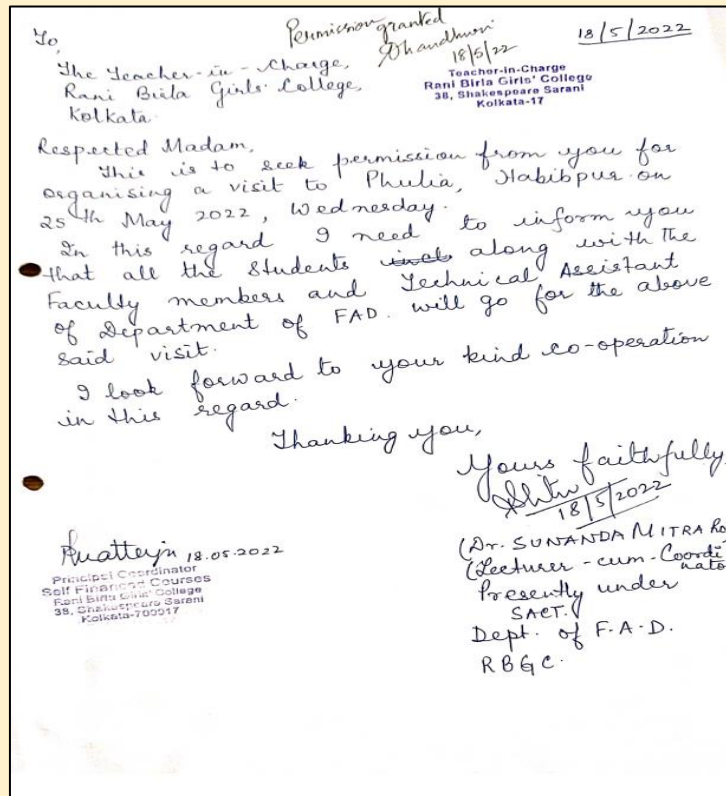 Permission granted
18/5/22
Teacher-in-Charge
Rani Birla Girls' College
38, Shakespeare Sarani
Kolkata-17
18/5/2022
To,
The Teacher-in-Charge,
Rani Birla Girls' College,
Kolkata.
Respected Madam,
This is to seek permission from you for
organising a visit to Phulia, Habibpur on
25th May 2022, Wednesday.
In this regard I need to inform you
that all the students along with the
Faculty members and Technical Assistant
of Department of FAD. will go for the above
said visit.
I look forward to your kind co-operation
in this regard.
Thanking you,
Yours faithfully,
18/5/2022
(Dr. SUNANDA MITRA Ro
(Lecturer-cum-Coordi
nato
Presently under
SACT.)
Dept. of F.A.D.
RBGC.
18.05.2022
Principal Coordinator
Self Financed Courses
Rani Birla Girls' College
38, Shakespeare Sarani
Kolkata-700017